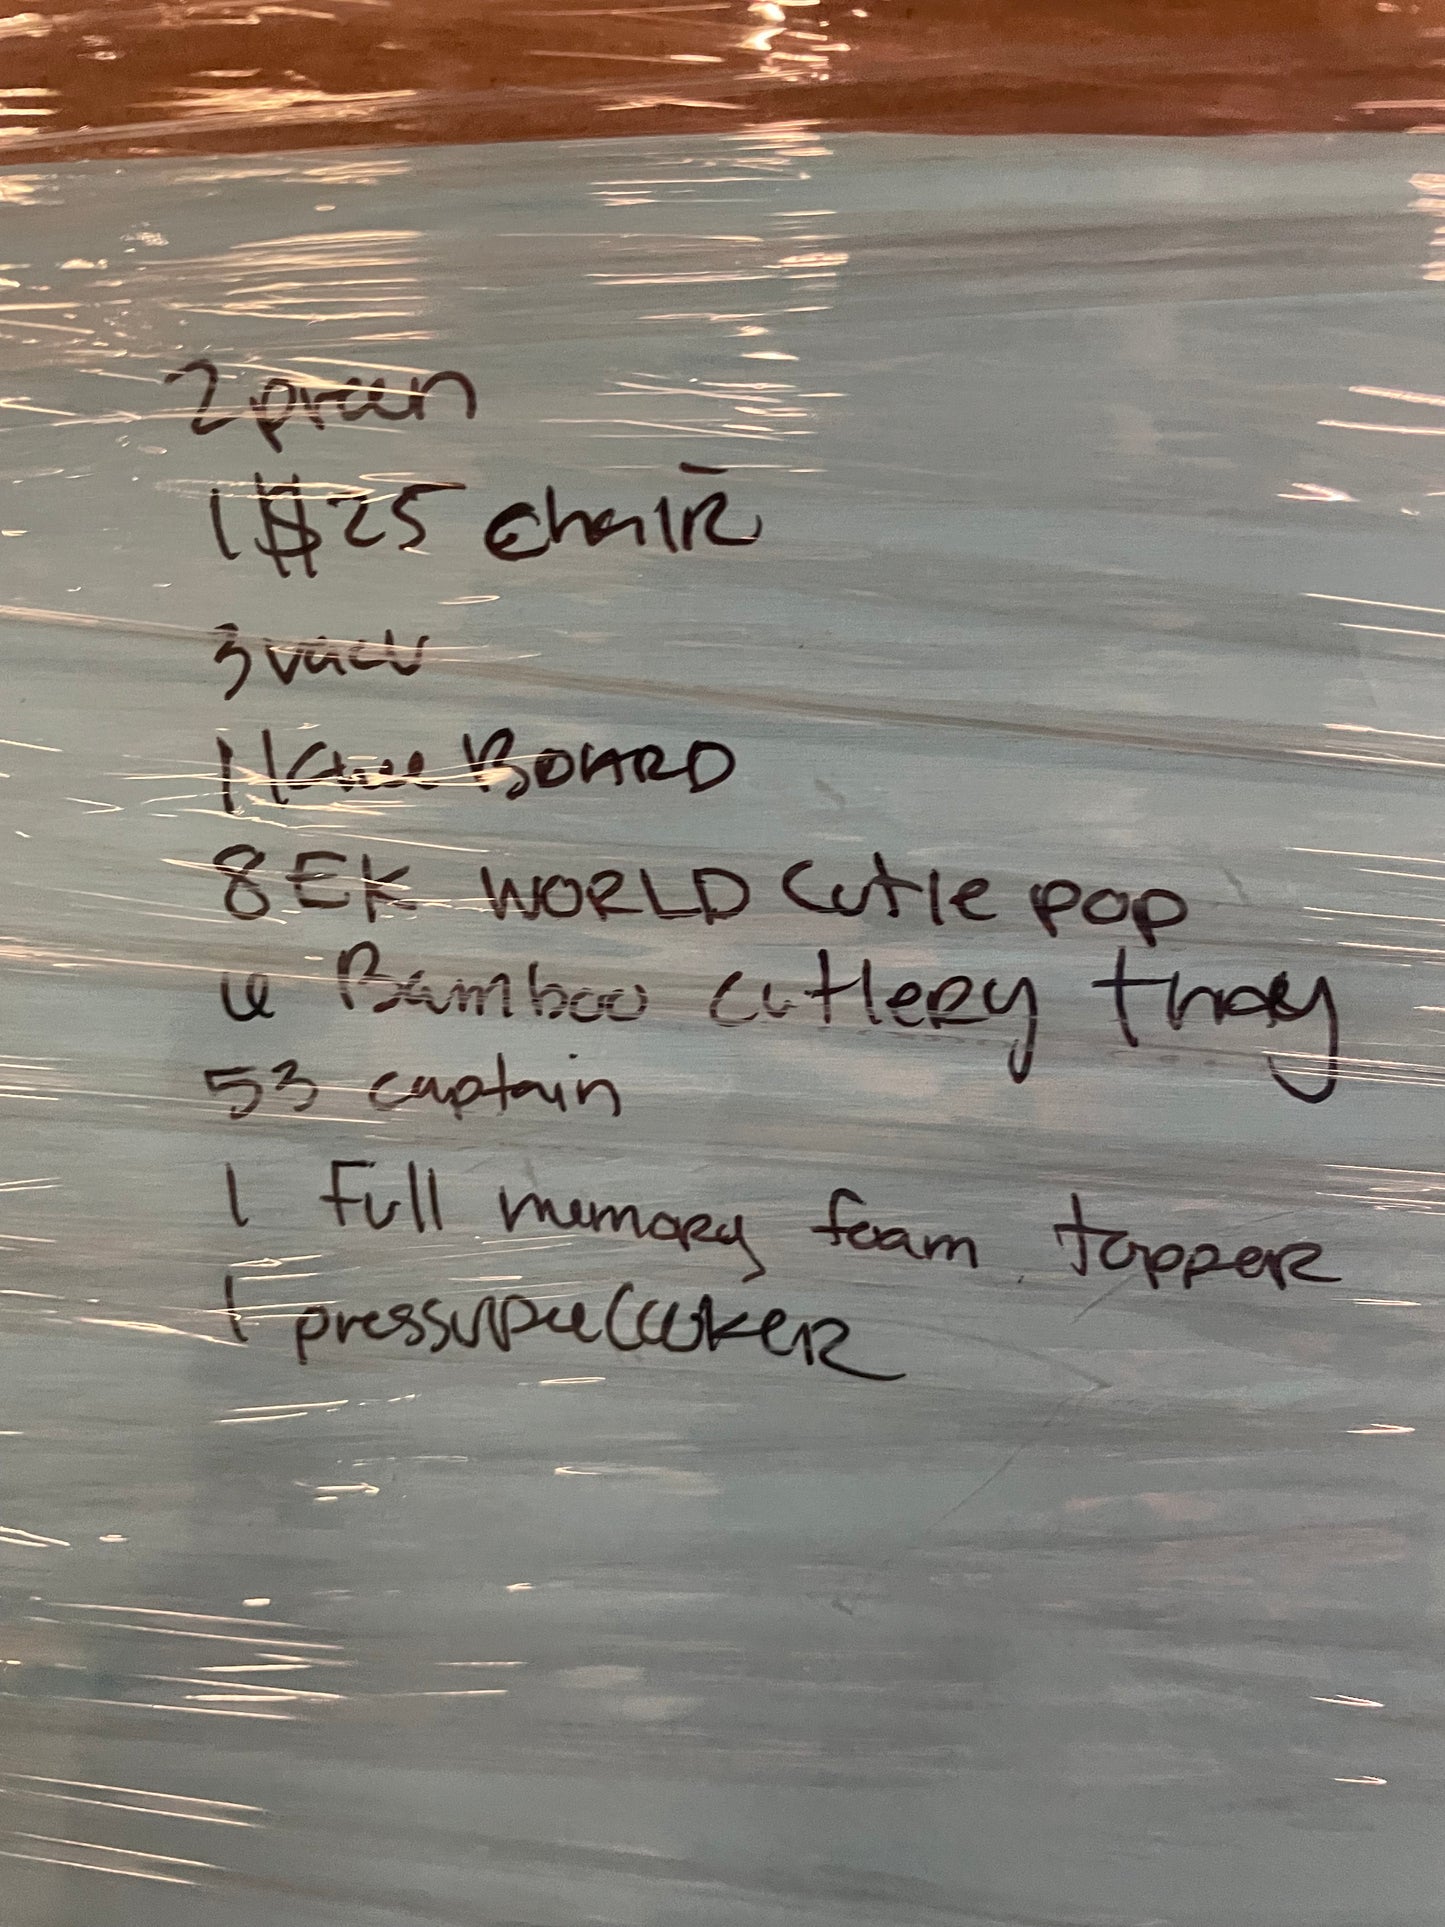 2 preen
1 $25 chair
3 vacu
1 Knee BOARD
8 EK WORLD Cutie pop
6 Bamboo cutlery tray
53 captain
1 Full memory foam topper
1 pressure CooKeR